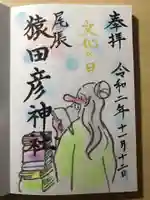 奉拝
令和二年十一月十二日
文化の日
尾張
猿田彦神社